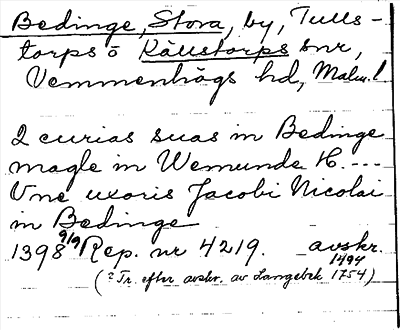 Bedinge, Stora, by, Tulls-
torps o Källstorps snr,
Vemmenhögs hd, Malm. l
2 curias suas in Bedinge
magle in Wemunde H. ---
Une uxoris Jacobi Nicolai
in Bedinge
1398 9/9 Rep. nr 4219. avskr. 1494
(? Tr. efter avskr. av Langebek 1754)